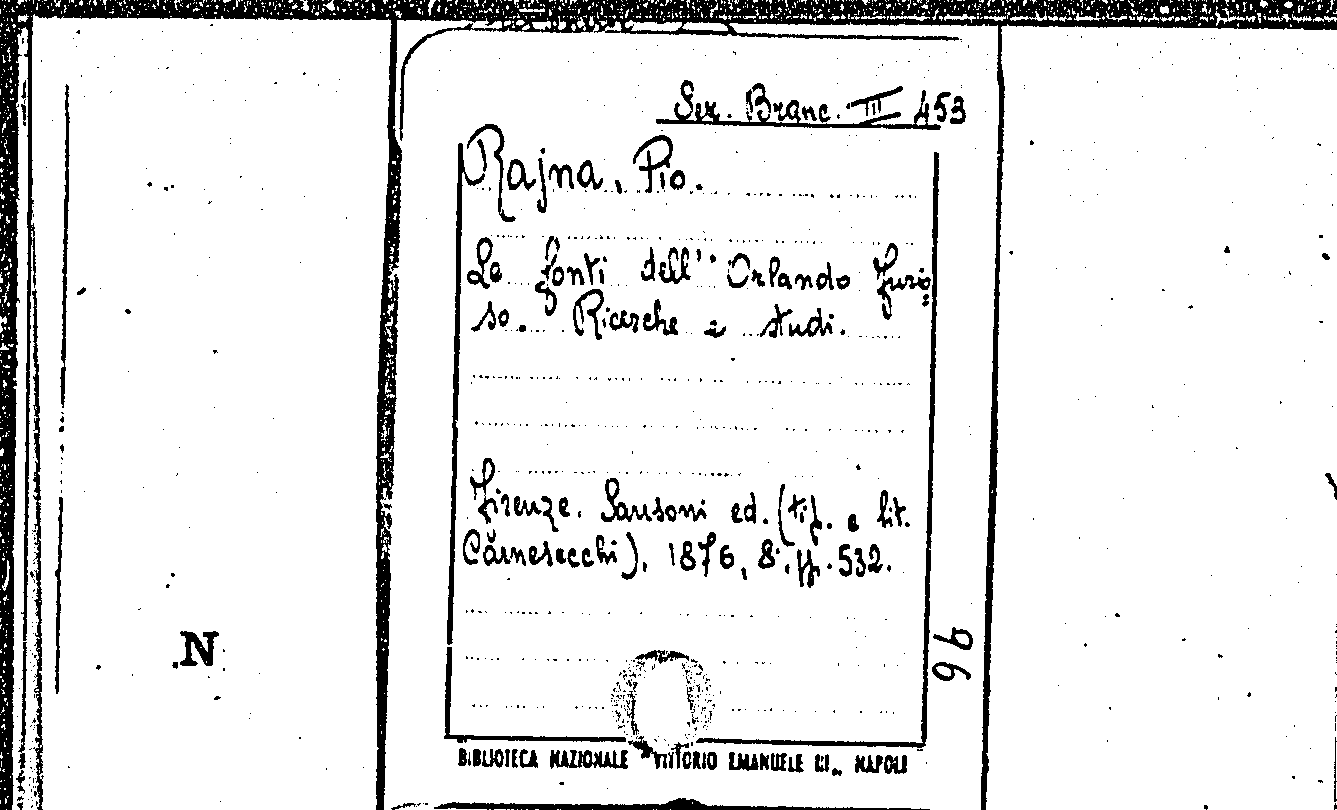 Sez. Branc. III 453
Rajna, Pio.
Le fonti dell'"Orlando Furio=
so. Ricerche e studi.
Firenze. Sansoni ed. (tip. e lit.
Carnesecchi), 1876, 8°. pp. 532.
96
N
BIBLIOTECA NAZIONALE "VITTORIO EMANUELE III„ NAPOLI